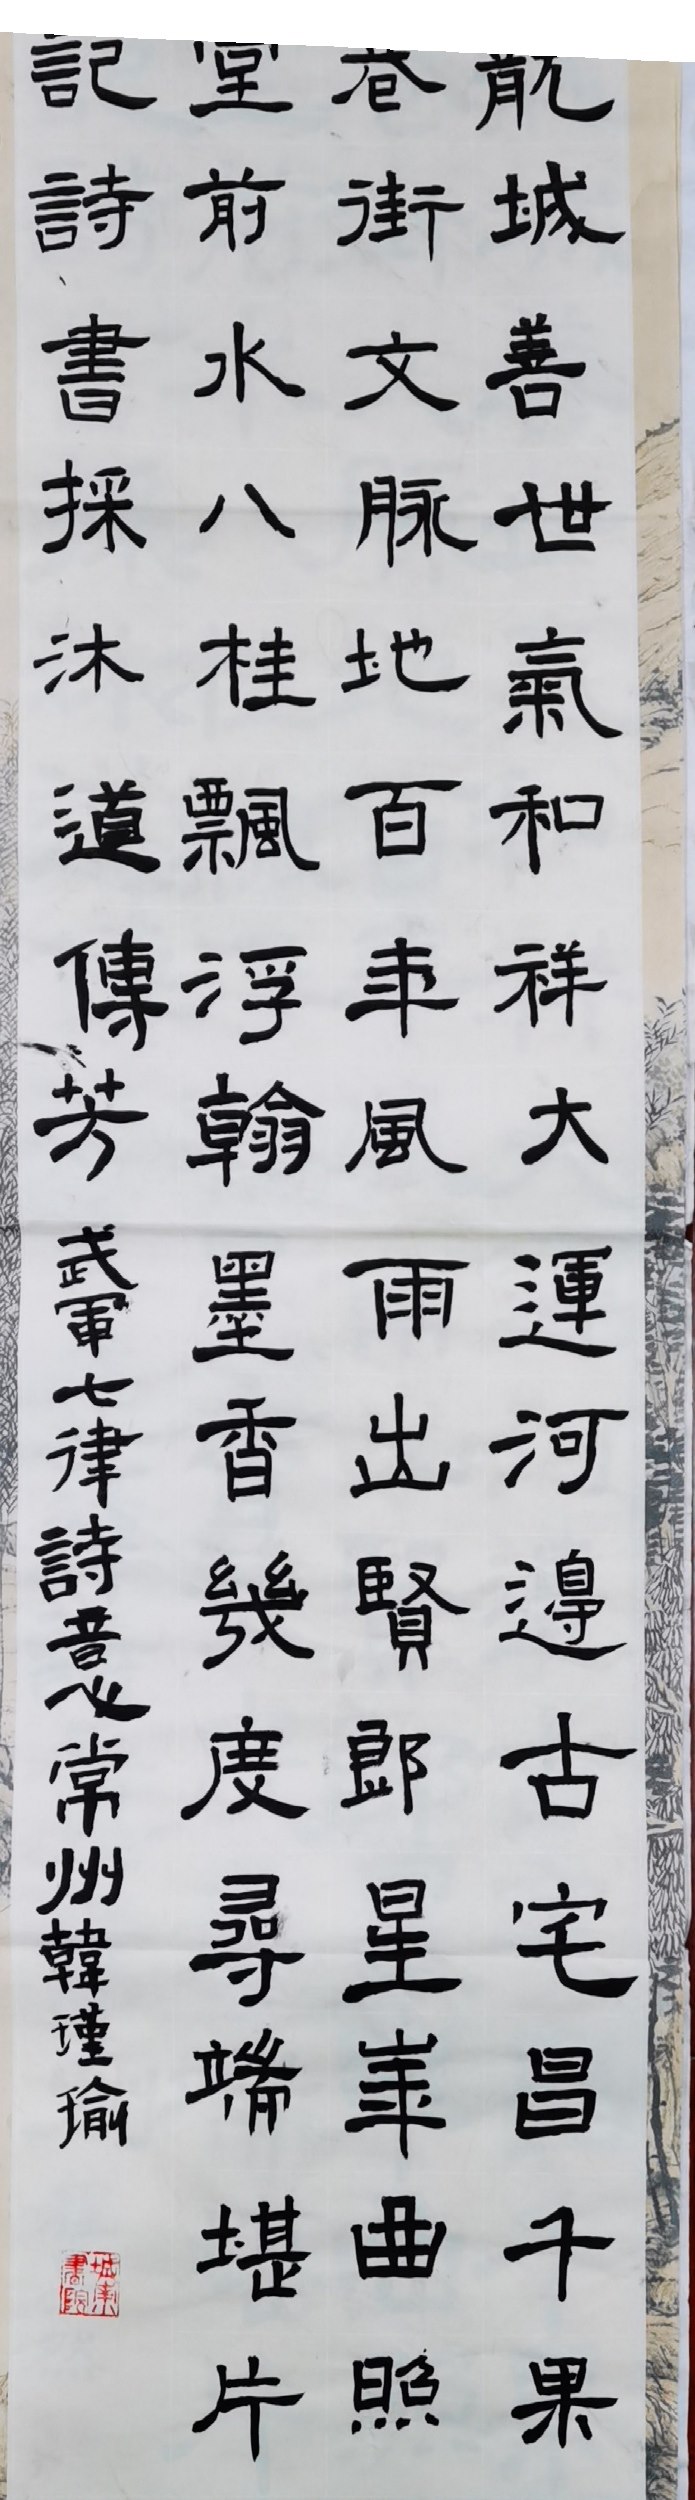 龍城善世氣和祥大運河邊古宅昌千果
巷街文脉地百年風雨出賢郎星峯曲照
堂前水八桂飄浮翰墨香幾度尋端堪片
記詩書採沐道傳芳
武軍七律詩意常州韓瑾瑜
城東書院